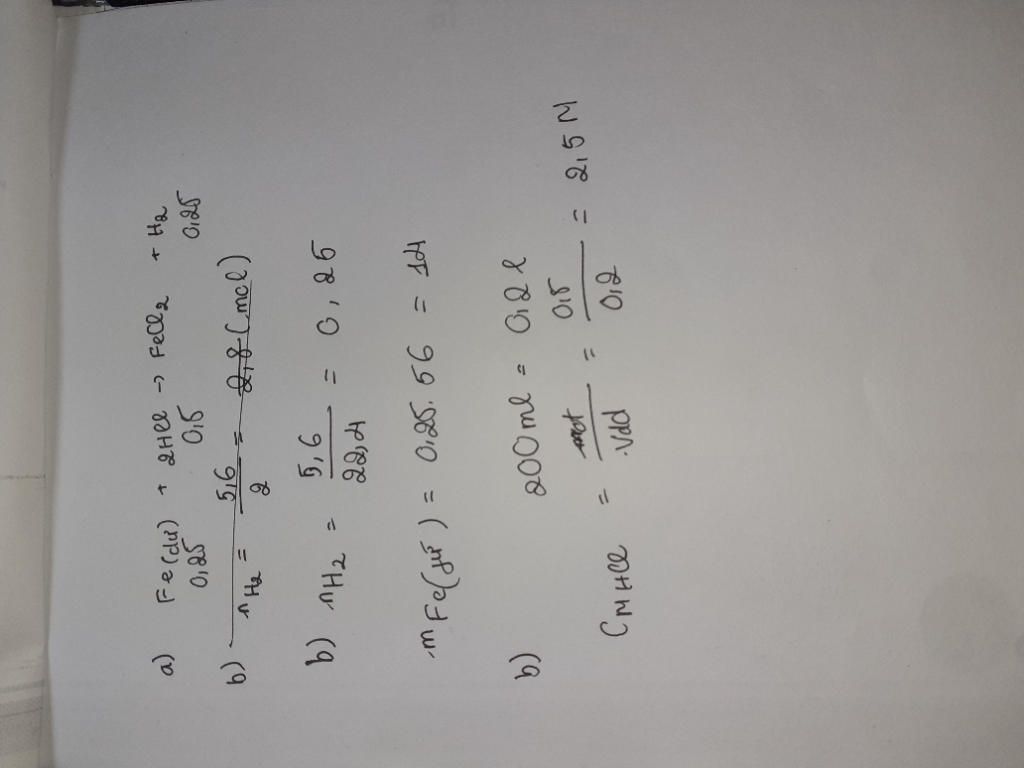 a) Fe(dư) + 2HCl → FeCl2 + H2
0,25 0,5 0,25
b) nH2 = 5,6/2 = 2,8 (mol)
b) nH2 = 5,6/22,4 = 0,25
mFe(dư) = 0,25.56 = 14
b) 200ml = 0,2l
CM HCl = /Vdd = 0,5/0,2 = 2,5 M